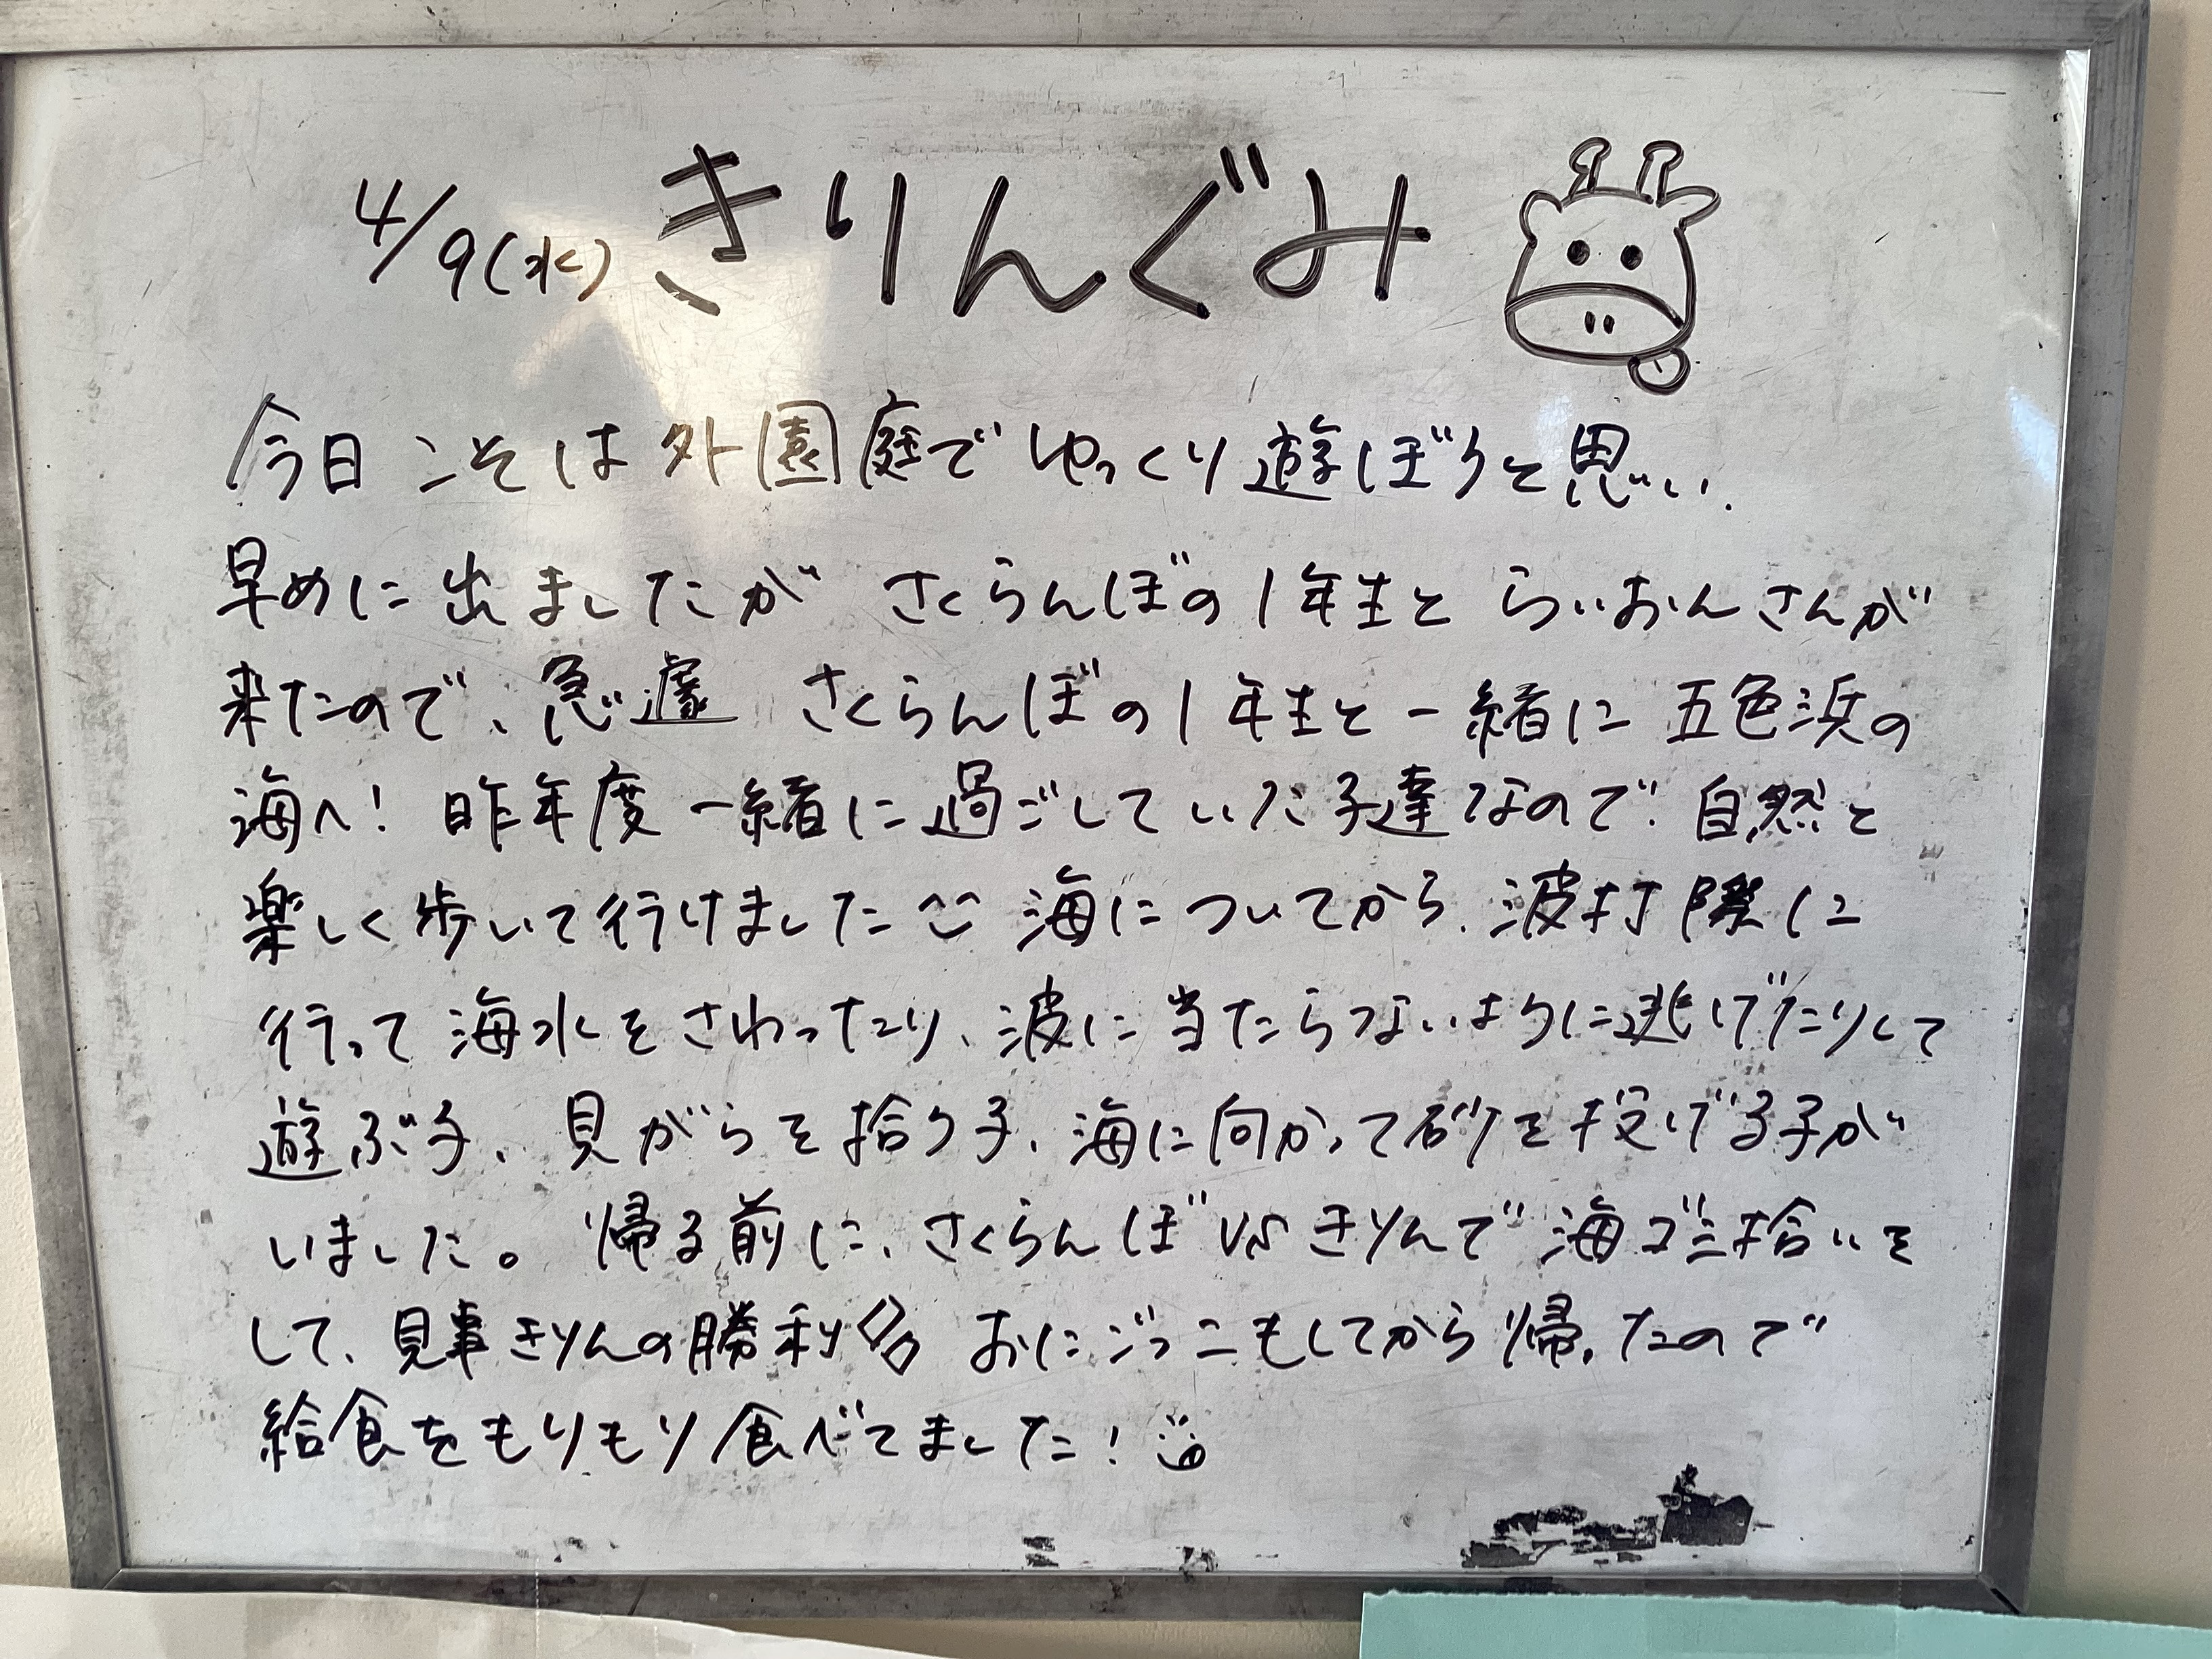 4/9(水) きりんぐみ
今日こそは外園庭でゆっくり遊ぼうと思い、
早めに出ましたが さくらんぼの1年生とらいおんさんが
来たので、急遽 さくらんぼの1年生と一緒に五色浜の
海へ! 昨年度一緒に過ごしていた子達なので自然と
楽しく歩いて行けました 海についてから、波打際に
行って海水をさわったり、波に当たらないように逃げたりして
遊ぶ子、貝がらを拾う子、海に向かって砂を投げる子が
いました。帰る前に、さくらんぼVSきりんで海ゴミ拾いを
して、見事きりんの勝利 おにごっこもしてから帰ったので
給食をもりもり食べてました!